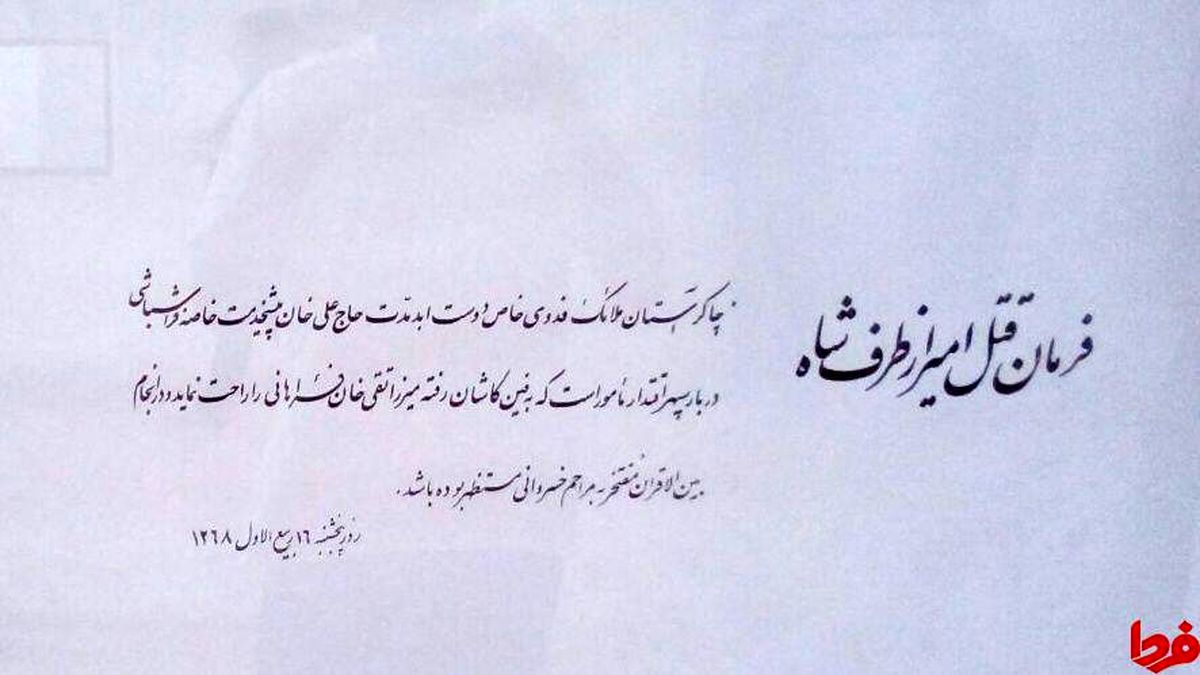 فرمان قتل امیر از طرف شاه
چاکر آستان ملائک فدوی خاص دولت ابد مدت حاج علی خان پیشخدمت خاصه فراشباشی
دربار سپهر اقتدار مأمور است که به فین کاشان رفته میرزا تقی خان فراهانی را راحت نماید و در انجام
بین الاقران مفتخر به مراحم خسروانی مستظهر بوده باشد.
روز پنجشنبه ١٦ ربیع الاول ١٢٦٨
فردا